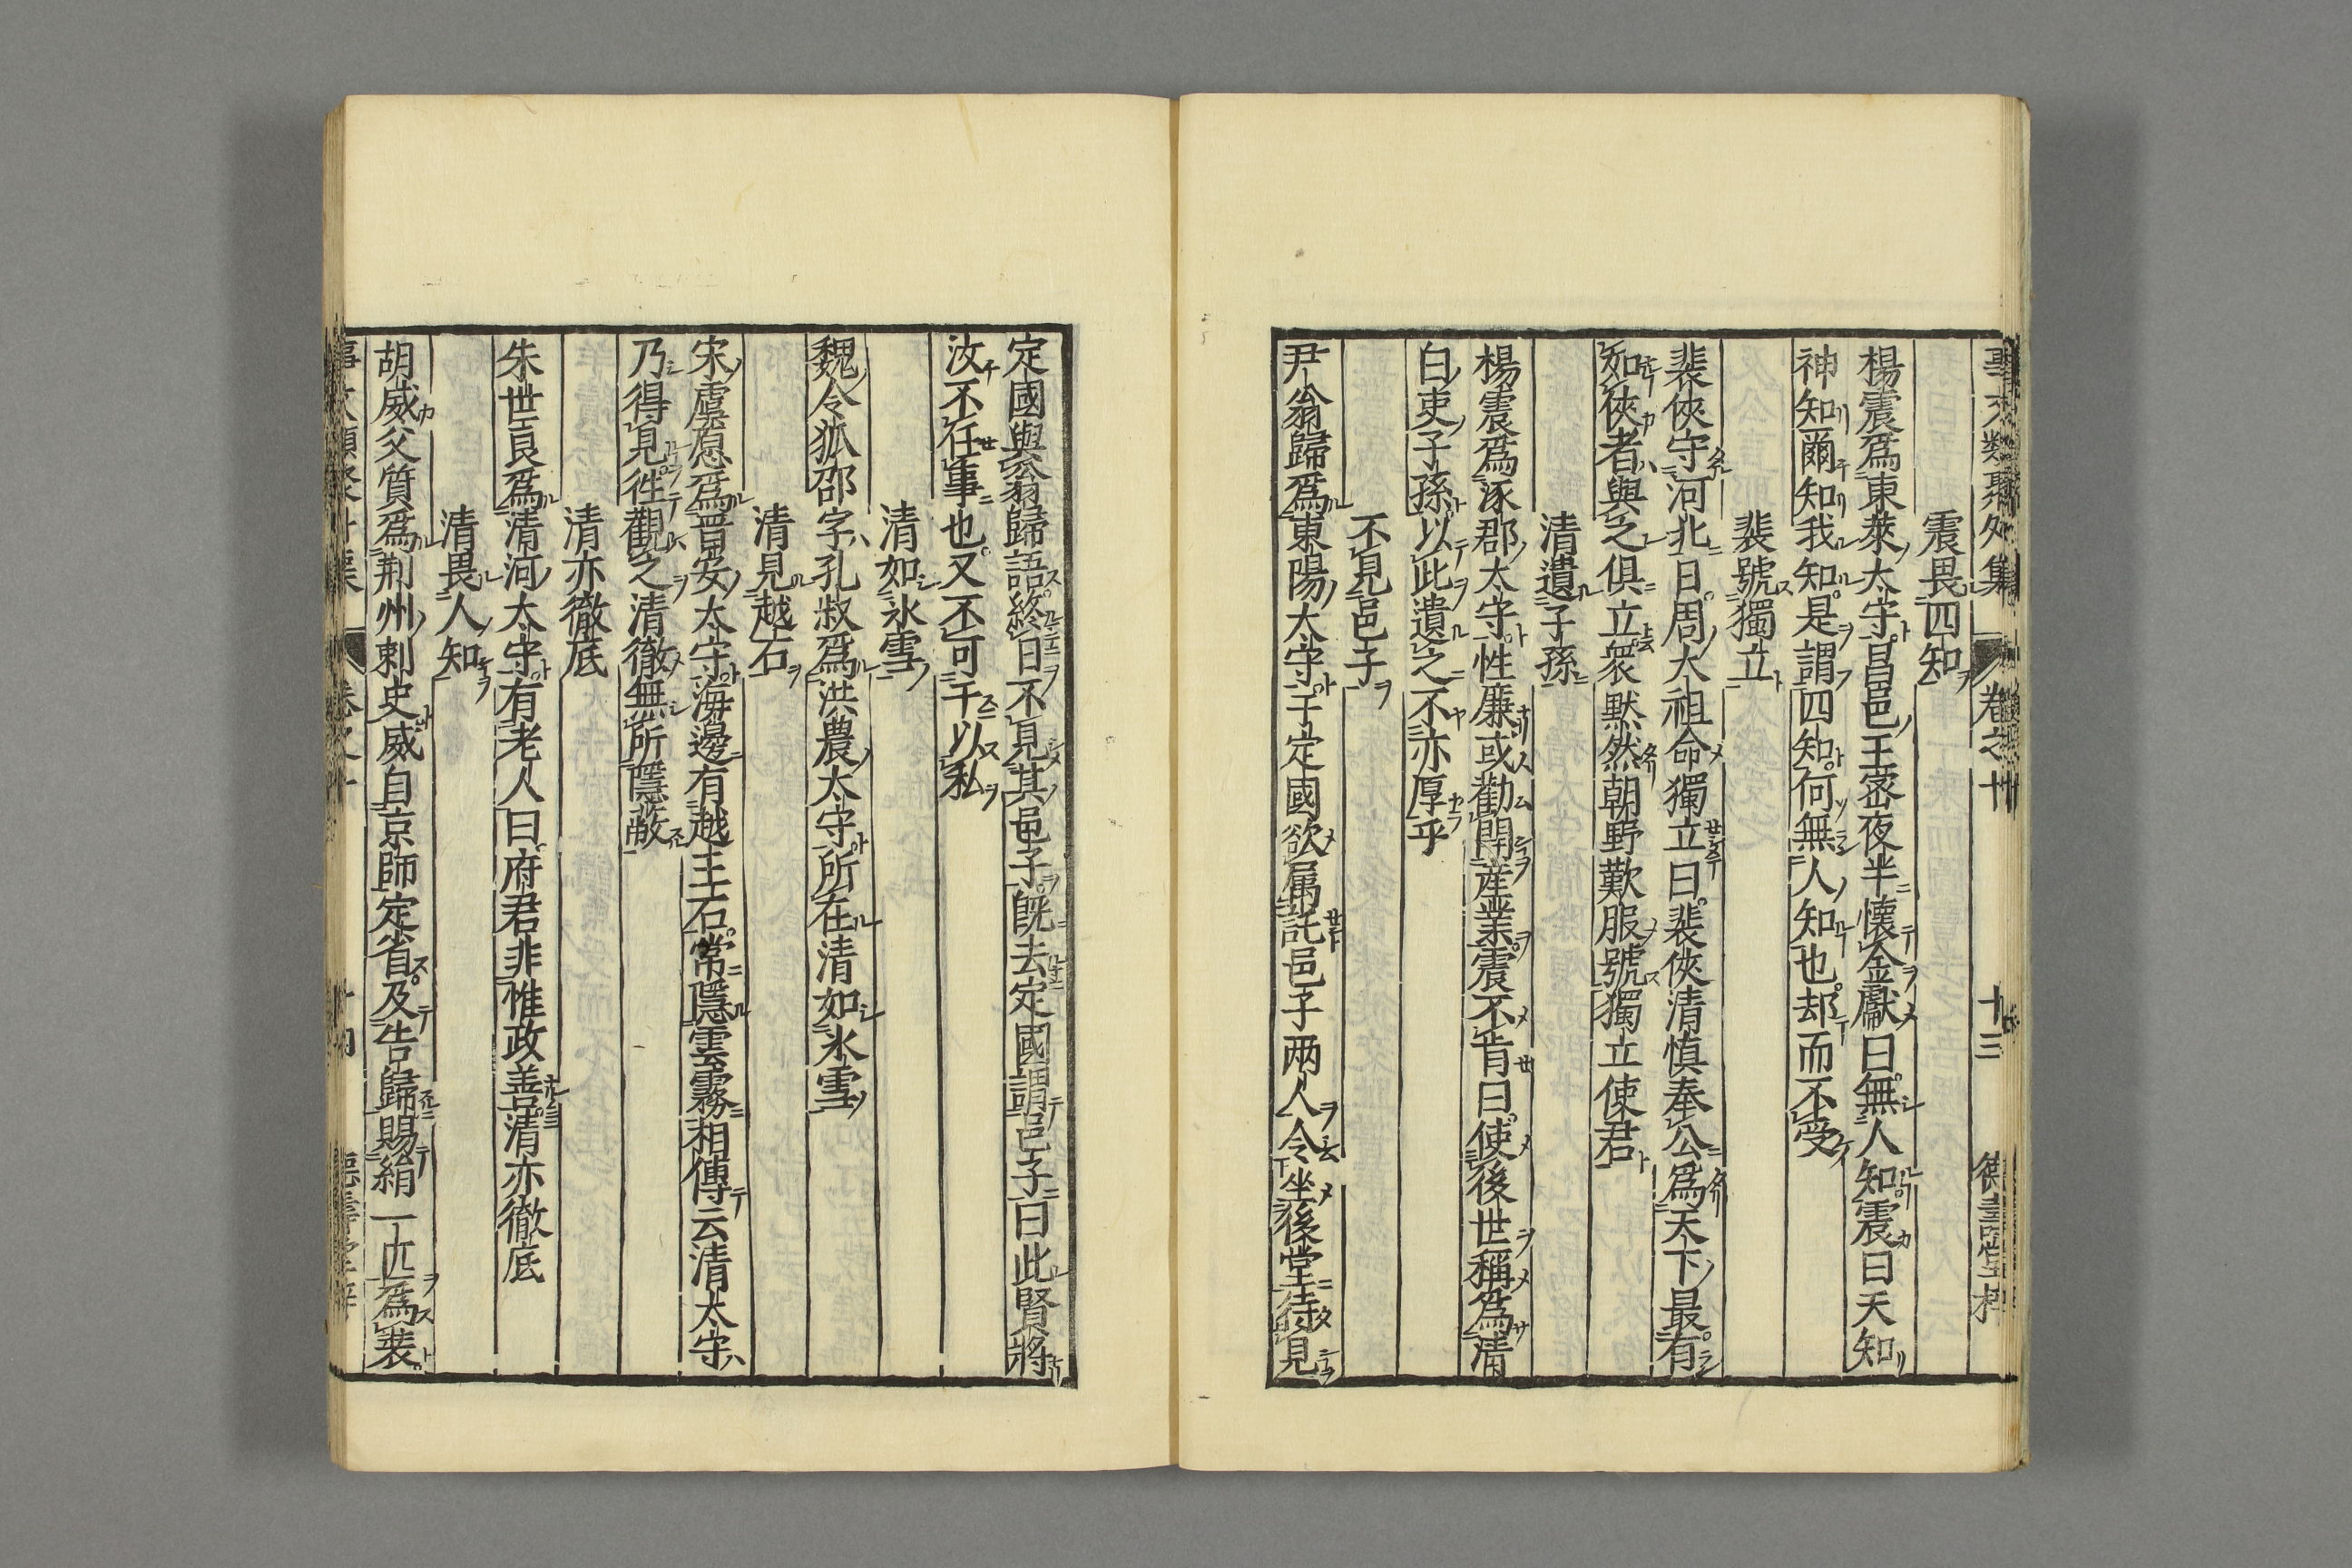 事文類聚外集 卷之十 十三 德壽堂梓
震畏四知
楊震爲東萊太守昌邑王密夜半懷金獻曰無人知震曰天知
神知爾知我知是謂四知何無人知也却而不受
裴號獨立
裴俠守河北曰周太祖命獨立曰裴俠清慎奉公爲天下最有
如俠者與之俱立衆默然朝野歎服號獨立使君
清遺子孫
楊震爲涿郡太守性廉或勸開産業震不肯曰使後世稱爲清
白吏子孫以此遺之不亦厚乎
不見邑子
尹翁歸爲東陽太守于定國欲属託邑子两人令坐後堂待見
定國與翁歸語終日不見其邑子既去定國謂邑子曰此賢將
汝不任事也又不可干以私
清如氷雪
魏令狐邵字孔叔爲洪農太守所在清如氷雪
清見越石
宋虞愿爲晋安太守海邊有越王石常隱雲霧相傳云清太守
乃得見徃觀之清徹無所隱蔽
清亦徹底
朱世良爲清河太守有老人曰府君非惟政善清亦徹底
清畏人知
胡威父質爲荆州刺史威自京師定省及告歸賜絹一匹爲裝